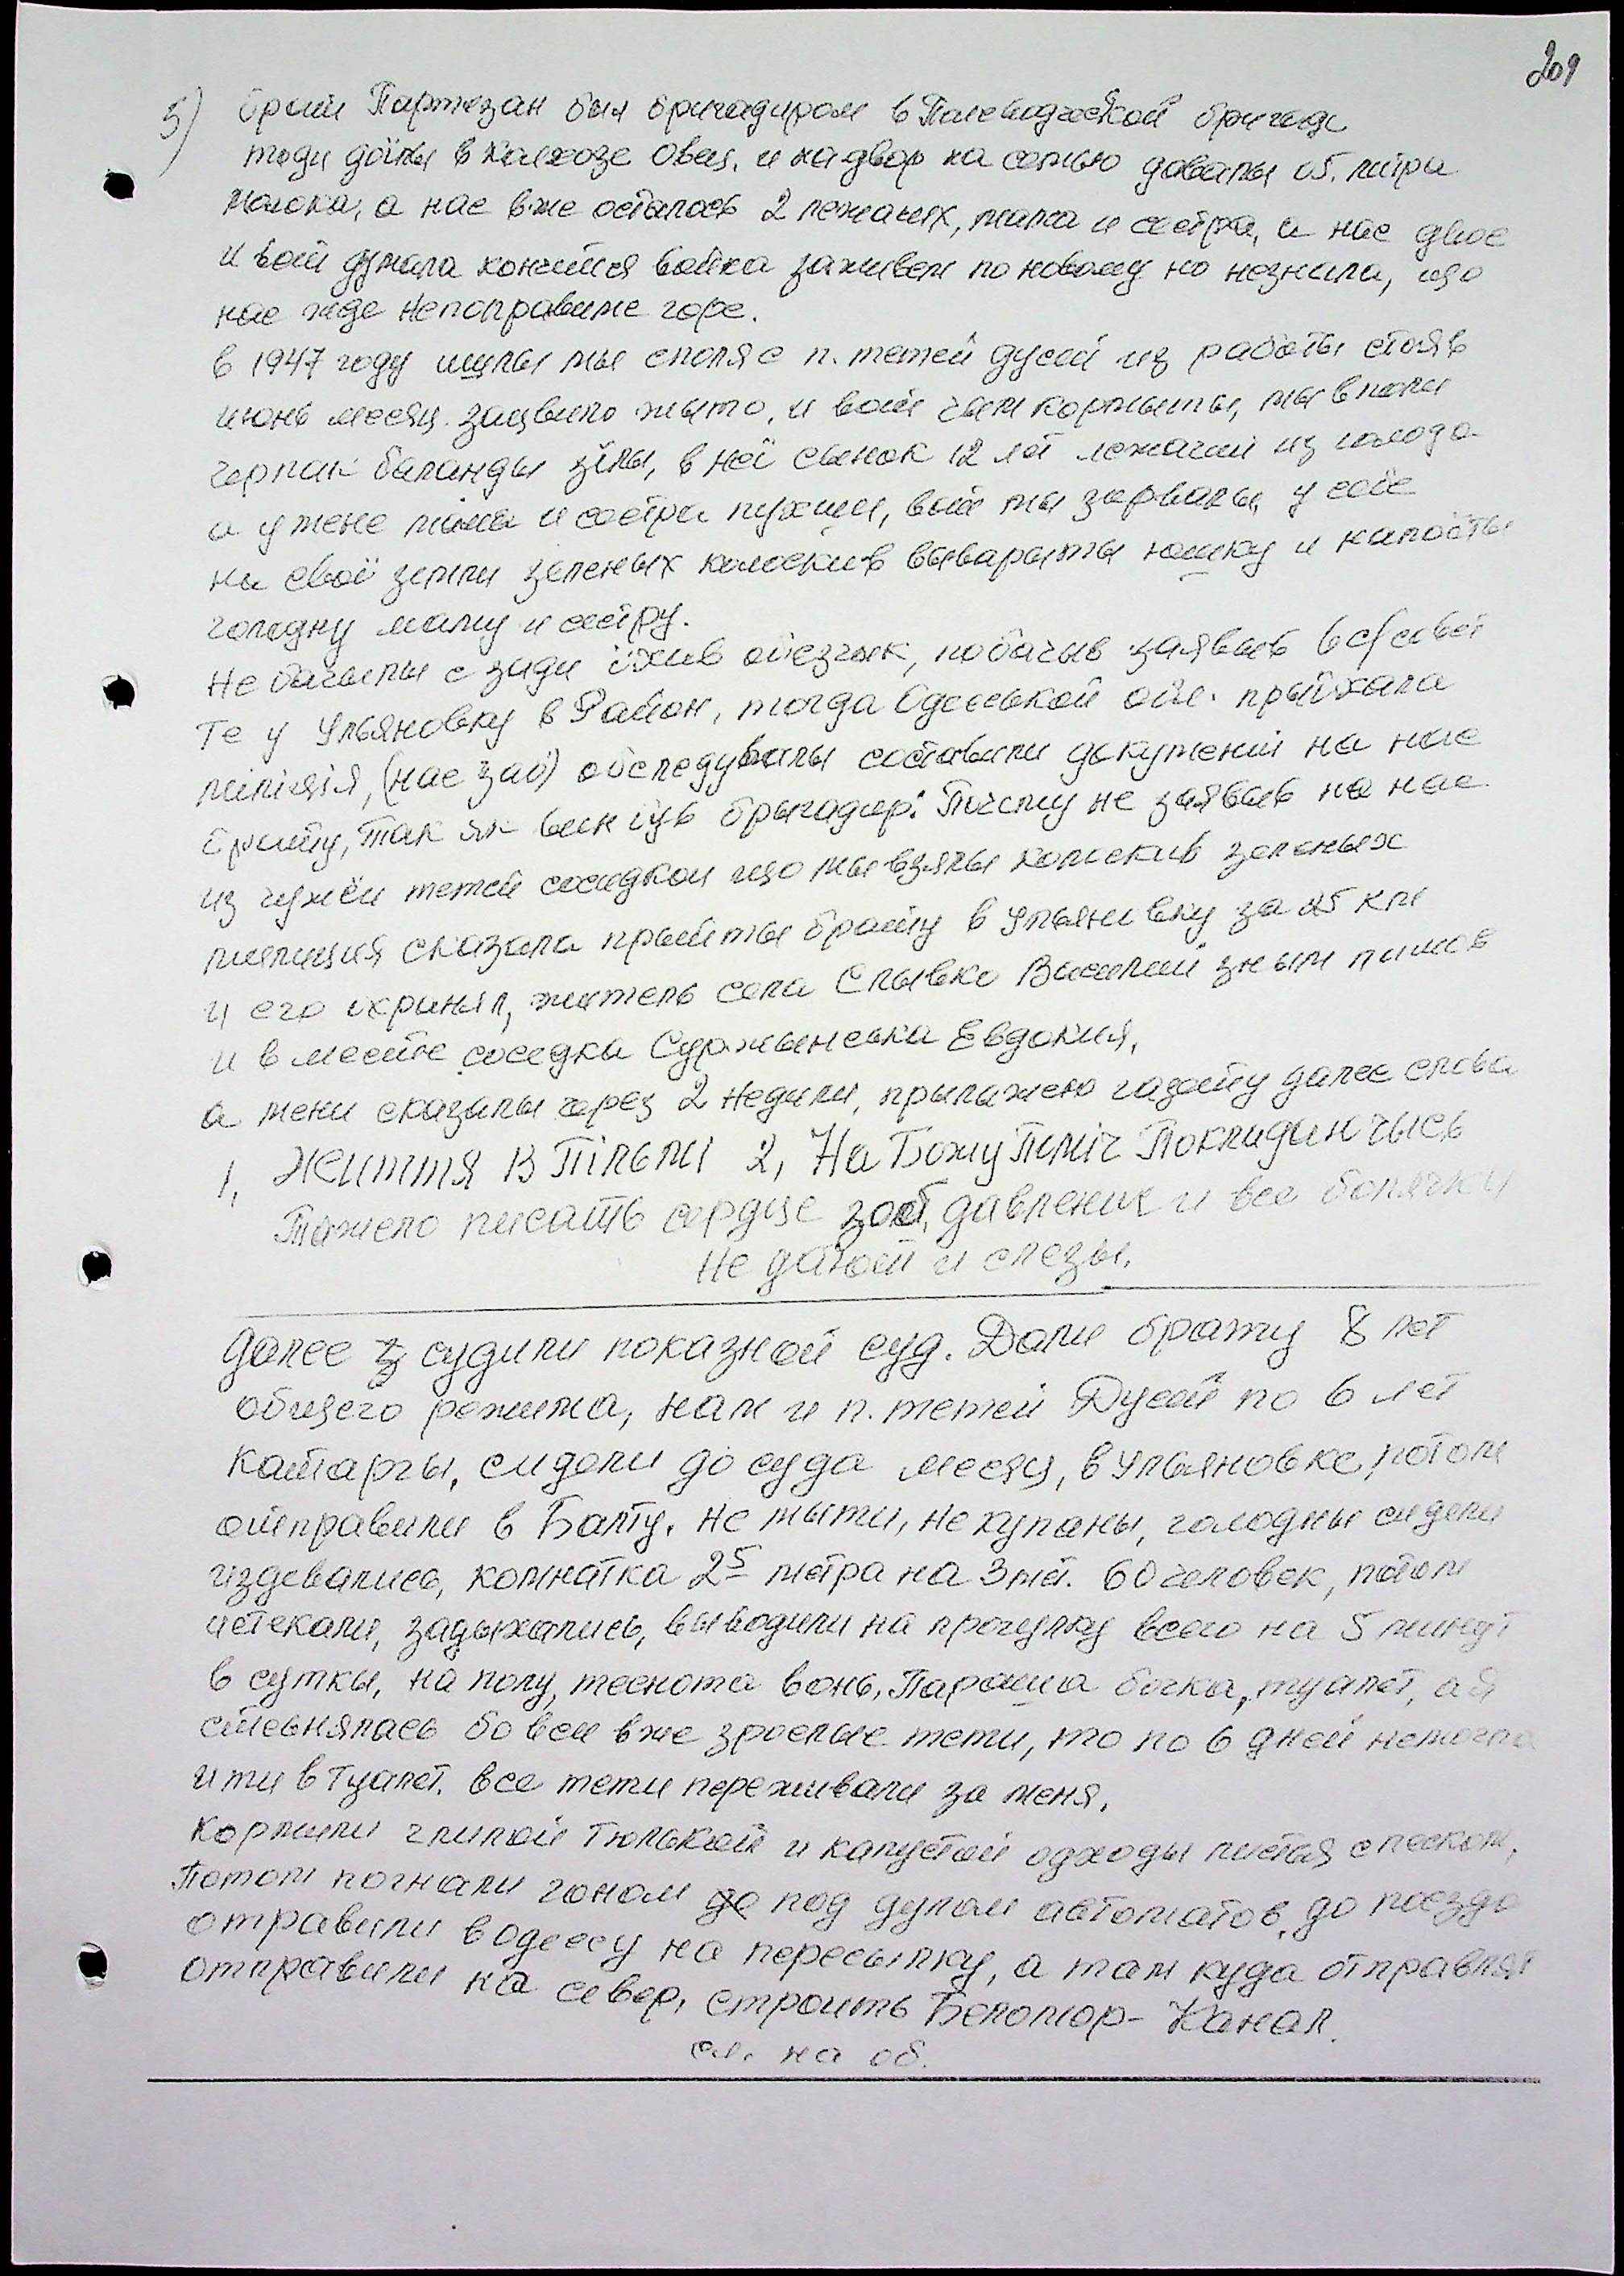 209
5) брат Партезан был бригадиром в Полеводческой бригаде
тоди доїлы в колхозе овец, и на двор на семью давалы 0,5. литра
молока, а нас вже осталось 2 лежачих, мама и сестра, а нас двое
и вот думала кончится война заживем по новому но незнала, що
нас жде непоправиме горе.
в 1947 году ишлы мы споля с п. тетей дусей из работы стояв
июнь месяц. зацвило жыто, и вот чим кормыты, мы в поли
черпак баланды зїлы, в неї сынок 12 лет лежачий из голода
а у мене мама и сестра пухши, вот мы зарвалы, у себе
на своï земли зеленых колоскив выварыты юшку и напоїты
голодну маму и сестру.
Не бачылы с зади їхив обезчик, побачив заявыв в с/совет
Те у Ульяновку в Район, тогда Одесськой обл. прыїхала
міліція, (нас заб) обследувалы составили документи на нас
брату, так як винїув брыгадир: Почему не заявыв на нас
из чужёй тетей соседкой що мы взялы колоскив зеленых
милиция сказала прыйты брату в Ульяновку за 25 км
и его охранял, житель села Слывко Василий зным пишов
и в месте соседка Суржынська Евдокия,
а мени сказалы через 2 недили, прыложею газету далее слова
1, Життя в Пільмі 2, На Божу Поміч Покладаючысь
Тяжело писать сердце зоб, давление и все болячки
Не дают и слезы.
Далее судили показной суд. Дали брату 8 лет
общего режима, нам и п. тетей Дусей по 6 лет
каторгы, сидели до суда месяц, в Ульяновке, потом
отправили в Балту. не мыти, не купаны, голодные сидели
издевались, комнатка 2 5 метра на 3 мет. 60 человек, потом
истекали, задыхались, выводили на прогулку всего на 5 минут
в сутки, на полу, теснота вонь, Параша бочка, туалет, а я
стеснялась бо вси вже зрослые тети, то по 6 дней немогла
ити в туалет. все тети переживали за меня.
кормили гнилой тюлькой и капустой одходы листья с песком,
Потом погнали гоном под дулом автоматов, до поезда
отравили в одессу на пересылку, а там куда отправлят
отправили на север, строить Беломор-Канал.
см. на об.